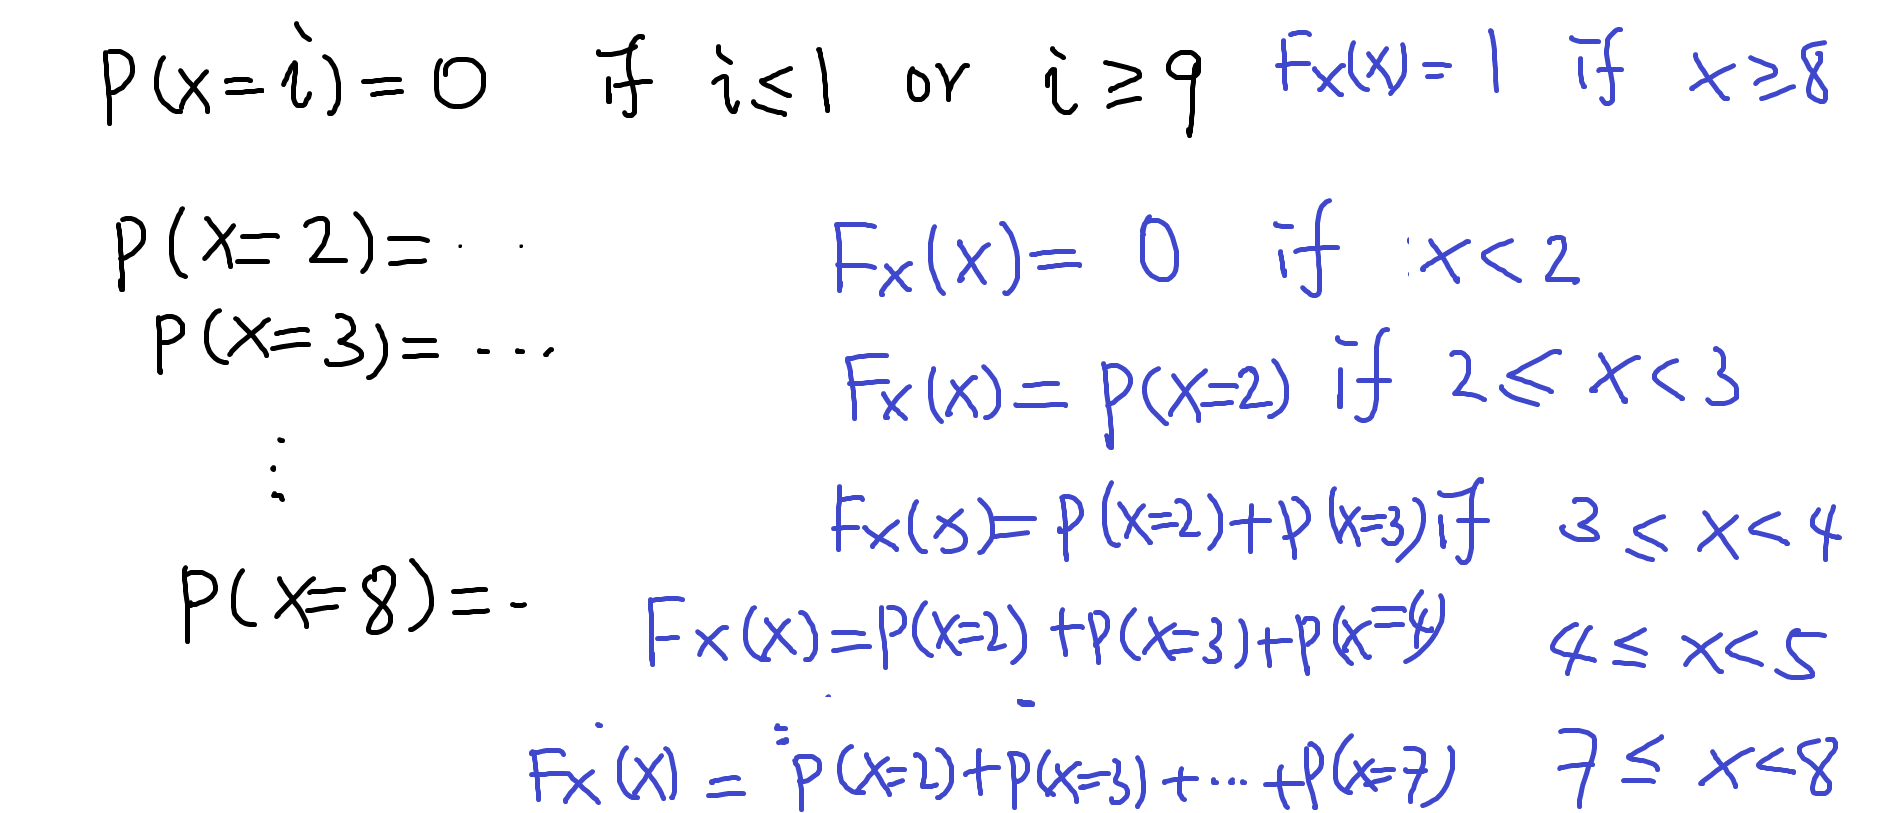 P(x=i)=0 if i≤1 or i≥9 F_X(x)=1 if x≥8
P(X=2)=··
F_X(x)=0 if x<2
P(X=3)=···
F_X(x)=P(X=2) if 2≤x<3
⋮
F_X(x)=P(X=2)+P(X=3) if 3≤x<4
P(X=8)=-
F_X(x)=P(X=2)+P(X=3)+P(X=4) 4≤x<5
F_X(x)=P(X=2)+P(X=3)+···+P(X=7) 7≤x<8